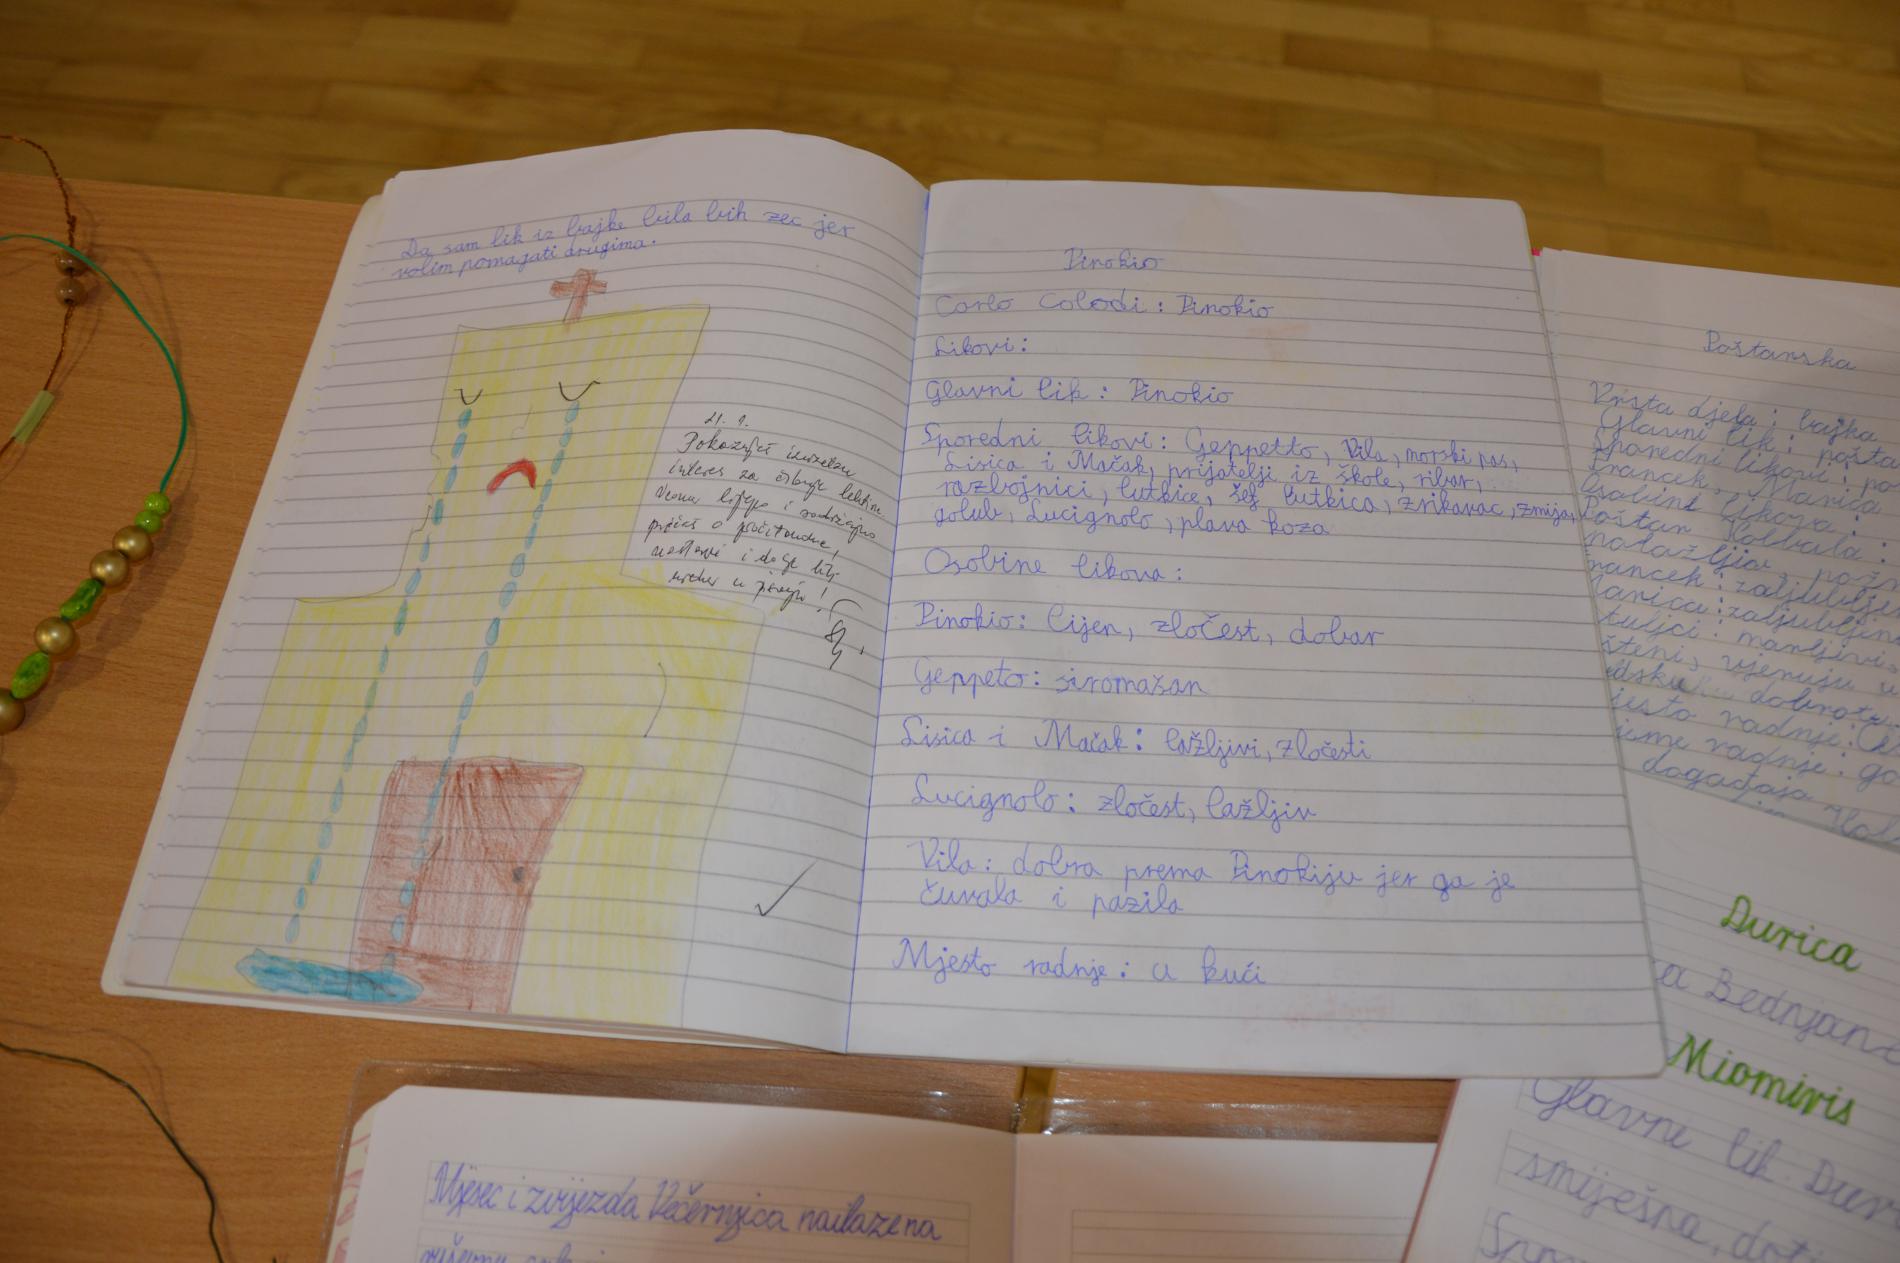 Da sam lik iz bajke bila bih zec jer
volim pomagati drugima.
21. 9.
Pokazuješ
interes za čitanje lektire.
lijepo i sadržajno
pričaš o pročitanome,
nastavi i dalje biti
Pinokio
Carlo Colodi: Pinokio
Likovi:
Glavni lik: Pinokio
Sporedni likovi: Geppetto, Vila, morski pas,
Lisica i Mačak, prijatelji iz škole, ribar,
razbojnici, lutkice, šef lutkica, zrikavac, zmija,
golub, Lucignolo, plava koza
Osobine likova:
Pinokio: lijen, zločest, dobar
Geppeto: siromašan
Lisica i Mačak: lažljivi, zločesti
Lucignolo: zločest, lažljiv
Vila: dobra prema Pinokiju jer ga je
čuvala i pazila
Mjesto radnje: u kući
Poštarska
Vrsta djela: bajka
Glavni lik: pošta
Sporedni likovi: po
Francek, Marica
Osobine likova:
Poštar Kolbaba:
rancek: zaljublje
Marica: zaljubljen
marljivi,
šteni, vjeruju u
dobrotu
jesto radnje:
jeme radnje: go
događaja
Đurica
ca Bednjane
Miomiris
Glavni lik: Đur
smiješna, doti
Spor
Mjesec i zvijezda Večernjica nailaze na